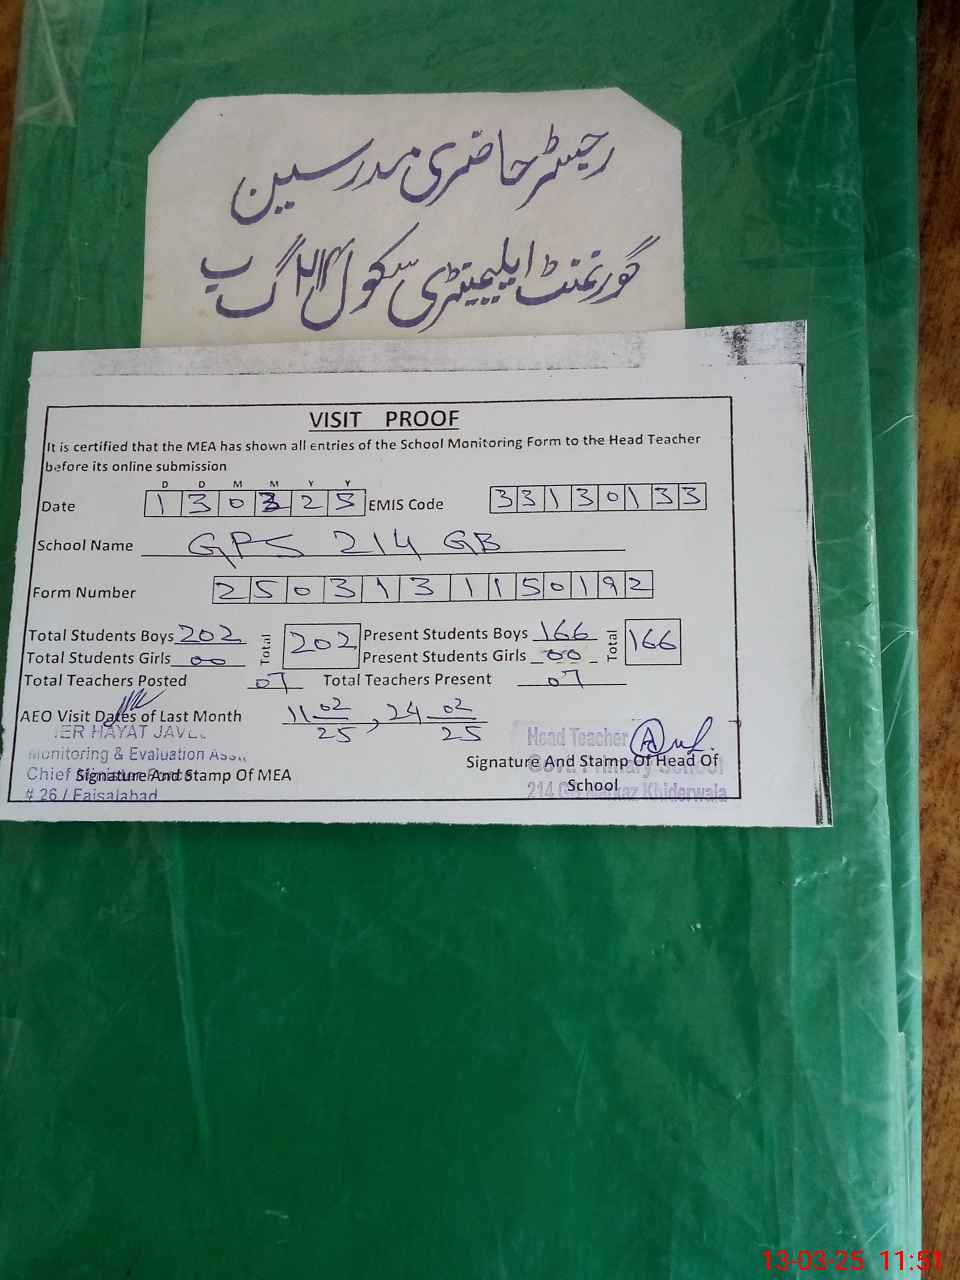 رجسٹر حاضری مدرسین
گورنمنٹ ایلیمینٹری سکول ۲۱۴ گ ب
VISIT PROOF
It is certified that the MEA has shown all entries of the School Monitoring Form to the Head Teacher
before its online submission
D D M M Y Y
Date 1 3 0 3 2 5 EMIS Code 3 3 1 3 0 1 3 3
School Name GPS 214 GB
Form Number 2 5 0 3 1 3 1 1 5 0 1 9 2
Total Students Boys 202 Total 202 Present Students Boys 166 Total 166
Total Students Girls 00 Present Students Girls 00
Total Teachers Posted 07 Total Teachers Present 07
AEO Visit Dates of Last Month 11 02 25, 24 02 25
HAYAT
Head Teacher
Monitoring & Evaluation
Signature And Stamp Of Head Of
School
Chief
Signature And Stamp Of MEA
Primary School
# 26 / Faisalabad
214 Markaz Khiderwala
13-03-25 11:51